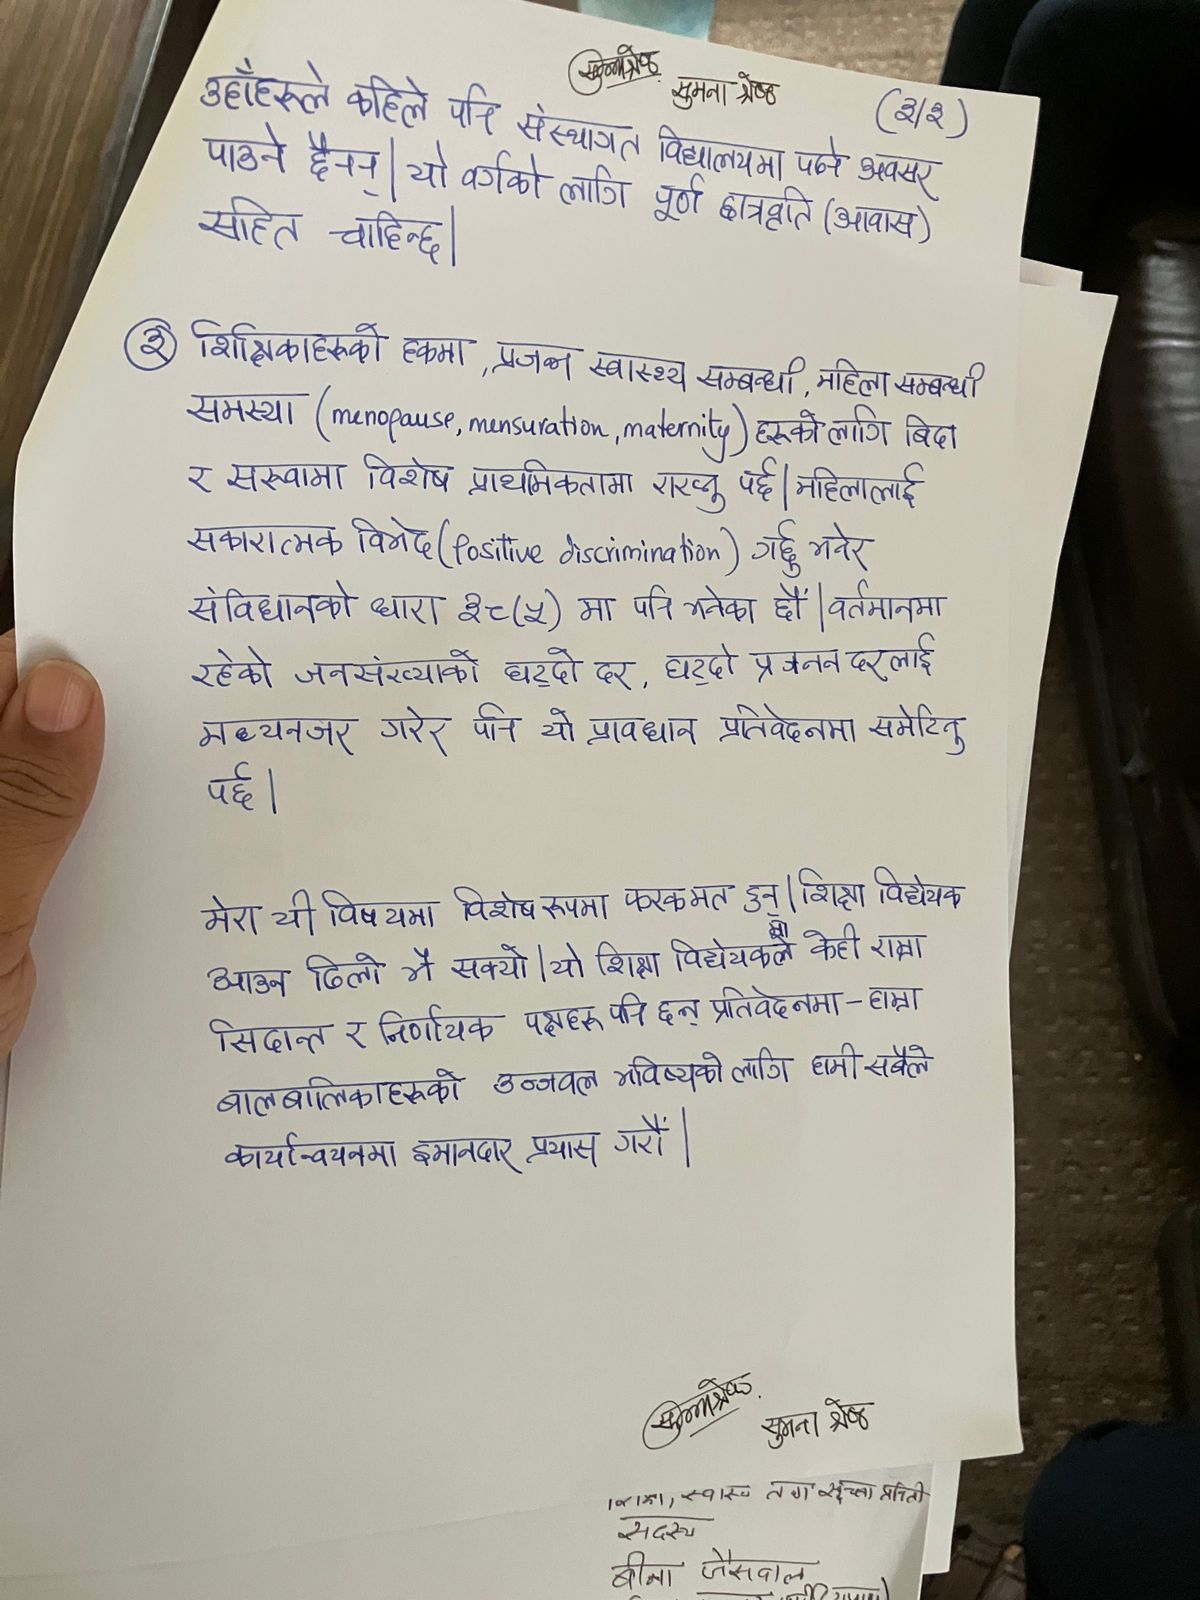 सुमना श्रेष्ठ
(३/३)
उहाँहरूले कहिले पनि संस्थागत विद्यालयमा पढ्ने अवसर
पाउने छैनन्| यो वर्गको लागि पूर्ण छात्रवृति (आवास)
सहित चाहिन्छ|
③ शिक्षिकाहरूको हकमा, प्रजनन स्वास्थ्य सम्बन्धी, महिला सम्बन्धी
समस्या (menopause, mensuration, maternity) हरूको लागि बिदा
र सरुवामा विशेष प्राथमिकतामा राख्नु पर्छ| महिलालाई
सकारात्मक विभेद (Positive discrimination) गर्छु भनेर
संविधानको धारा ३८(५) मा पनि भनेका छौं| वर्तमानमा
रहेको जनसंख्याको घट्दो दर, घट्दो प्रजनन दरलाई
मध्यनजर गरेर पनि यो प्रावधान प्रतिवेदनमा समेटिनु
पर्छ|
मेरा यी विषयमा विशेष रूपमा फरक मत हुन्| शिक्षा विधेयक
आउन ढिलो भै सक्यो| यो शिक्षा विधेयक केही राम्रा
सिदान्त र निर्णायक पक्षहरू पनि छन् प्रतिवेदनमा - हाम्रा
बालबालिकाहरूको उज्जवल भविष्यको लागि हामी सबैले
कार्यान्वयनमा इमानदार प्रयास गरौं|
सुमना श्रेष्ठ
स्वास्थ्य तथा
सदस्य
बीना जैसवाल